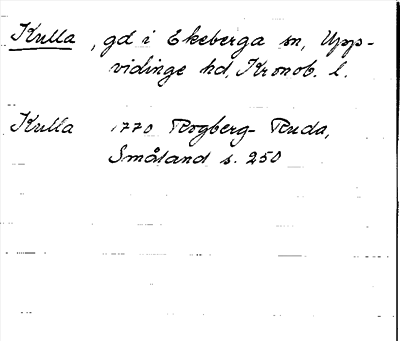 Kulla, gd i Ekeberga sn, Upp-
vidinge hd, Kronob. l.
Kulla 1770 Rogberg-Ruda,
Småland s. 250